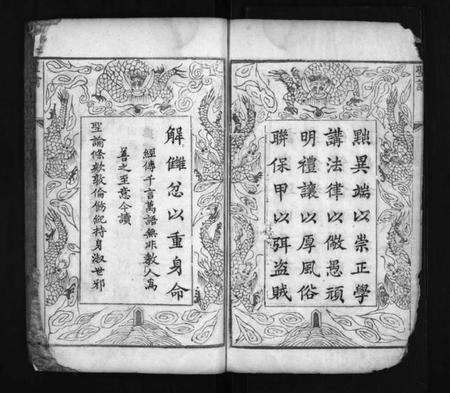 黜異端以崇正學
講法律以儆愚頑
明禮讓以厚風俗
聯保甲以弭盜賊
解讎忿以重身命
經傳千言萬語無非教人為
善之至意今讀
聖諭條款敦倫飭紀持身淑世邪